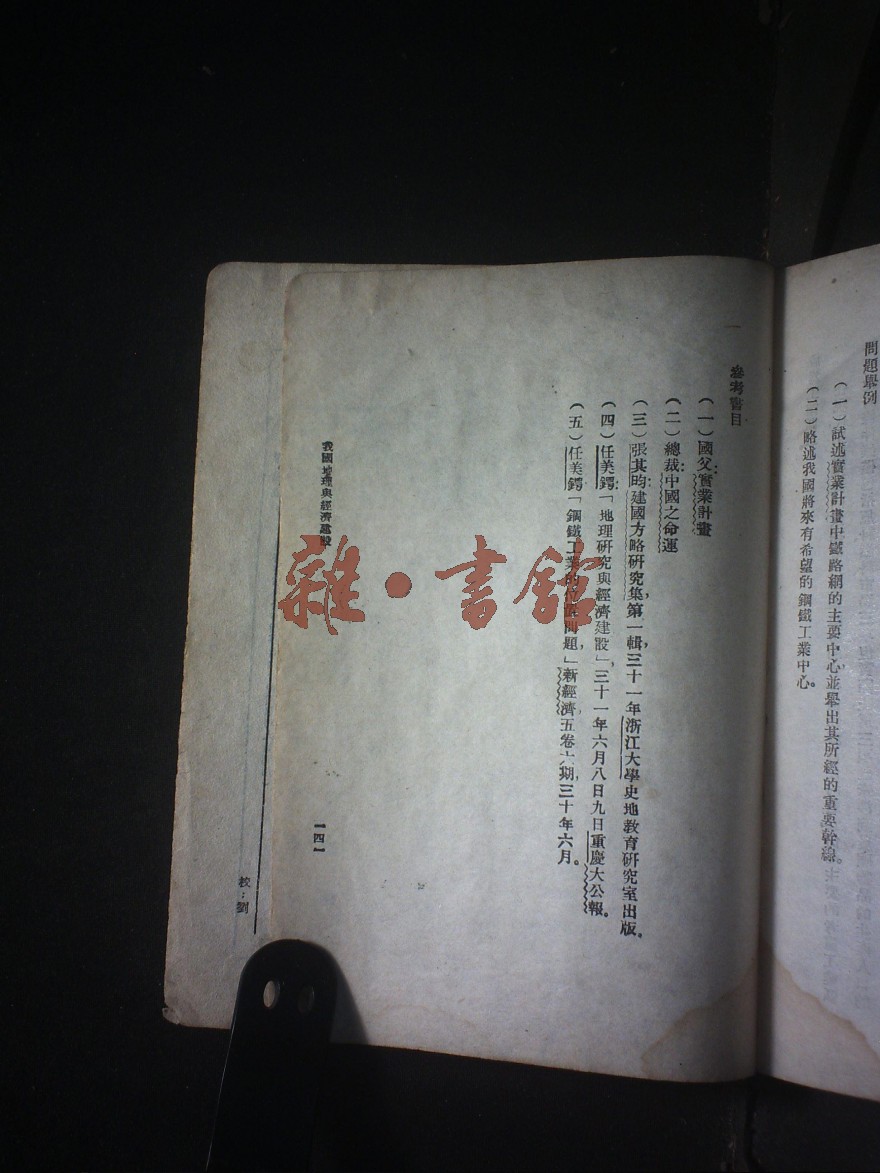 問題舉例
(一)試述實業計畫中鐵路網的主要中心,並舉出其所經的重要幹線。
(二)略述我國將來有希望的鋼鐵工業中心。
參考書目
(一)國父:實業計畫
(二)總裁:中國之命運
(三)張其昀:建國方略研究集第一輯,三十一年浙江大學史地教育研究室出版。
(四)任美鍔:「地理研究與經濟建設」,三十一年六月八日九日重慶大公報。
(五)任美鍔「鋼鐵工業的問題」,新經濟五卷六期,三十年六月。
我國地理與經濟建設
一四一
校:劉
雜·書館